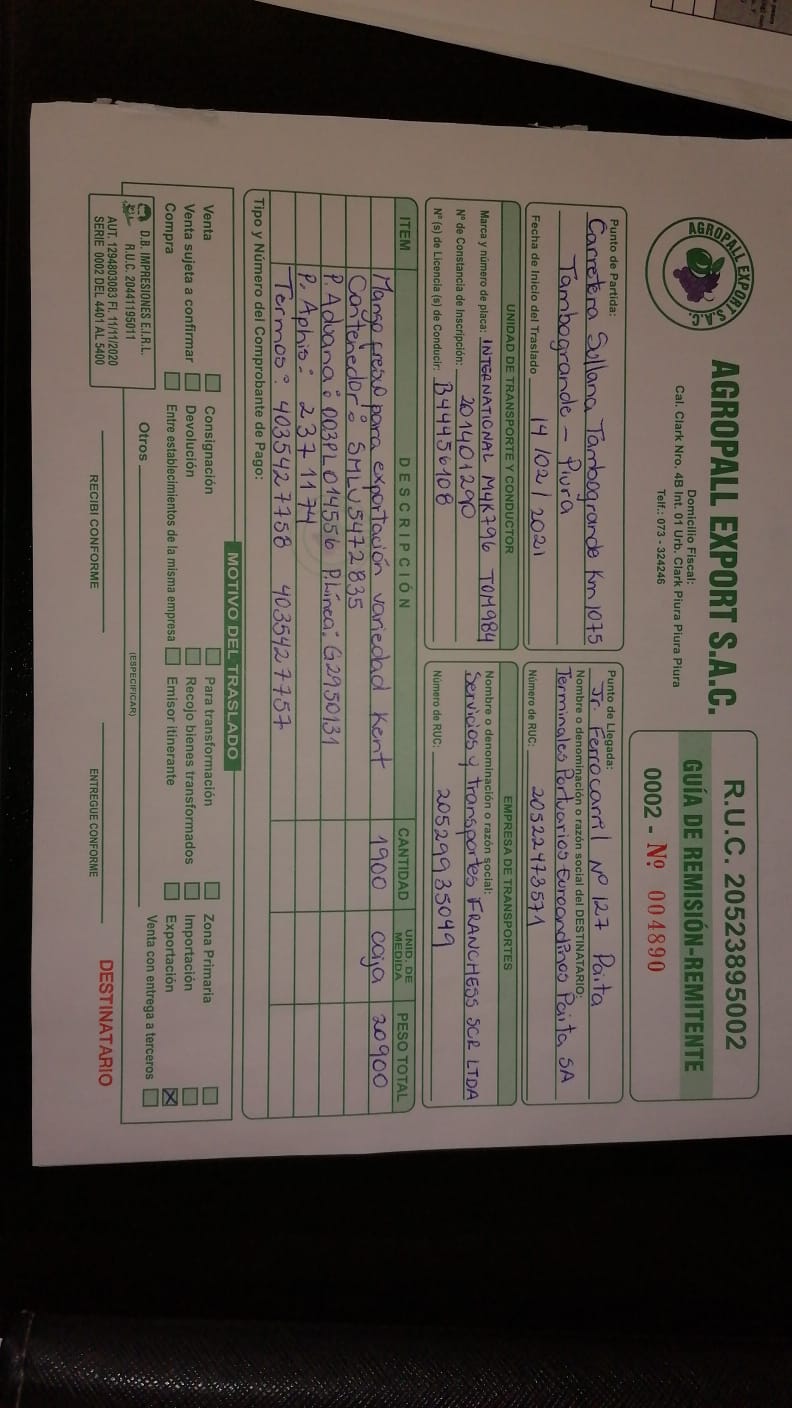 AGROPALL EXPORT S.A.C.
AGROPALL EXPORT S.A.C.
Domicilio Fiscal:
Cal. Clark Nro. 4B Int. 01 Urb. Clark Piura Piura Piura
Telf.: 073 - 324246
R.U.C. 20523895002
GUÍA DE REMISIÓN-REMITENTE
0002 - Nº 004890
Punto de Partida:
Carretera Sullana Tambogrande Km 1075
Tambogrande - Piura
Fecha de Inicio del Traslado 14/02/2021
Punto de Llegada:
Jr. Ferrocarril Nº 127 Paita
Nombre o denominación o razón social del DESTINATARIO:
Terminales Portuarios Euroandinos Paita SA
Número de RUC: 20522473571
UNIDAD DE TRANSPORTE Y CONDUCTOR
Marca y número de placa: INTERNATIONAL M4K796 TOM984
Nº de Constancia de Inscripción: 201401290
Nº (s) de Licencia (s) de Conducir: B44456108
EMPRESA DE TRANSPORTES
Nombre o denominación o razón social:
Servicios y transportes FRANCHESS SCR LTDA
Número de RUC: 20529935049
ITEM DESCRIPCIÓN CANTIDAD UNID. DE MEDIDA PESO TOTAL
Mango fresco para exportación variedad Kent 1900 caja 20900
Contenedor: SMLU5472835
P. Aduana: 003PL014556 P. Línea: G2950131
P. Aphis: 2371174
Termos: 4035427758 4035427757
Tipo y Número del Comprobante de Pago:
MOTIVO DEL TRASLADO
Venta Consignación Para transformación Zona Primaria
Venta sujeta a confirmar Devolución Recojo bienes transformados Importación
Compra Entre establecimientos de la misma empresa Emisor itinerante Exportación X
Otros Venta con entrega a terceros
(ESPECIFICAR)
D.B. IMPRESIONES E.I.R.L.
R.U.C. 20441195011
AUT. 1294803083 FI. 11/11/2020
SERIE 0002 DEL 4401 AL 5400
RECIBI CONFORME
ENTREGUE CONFORME
DESTINATARIO